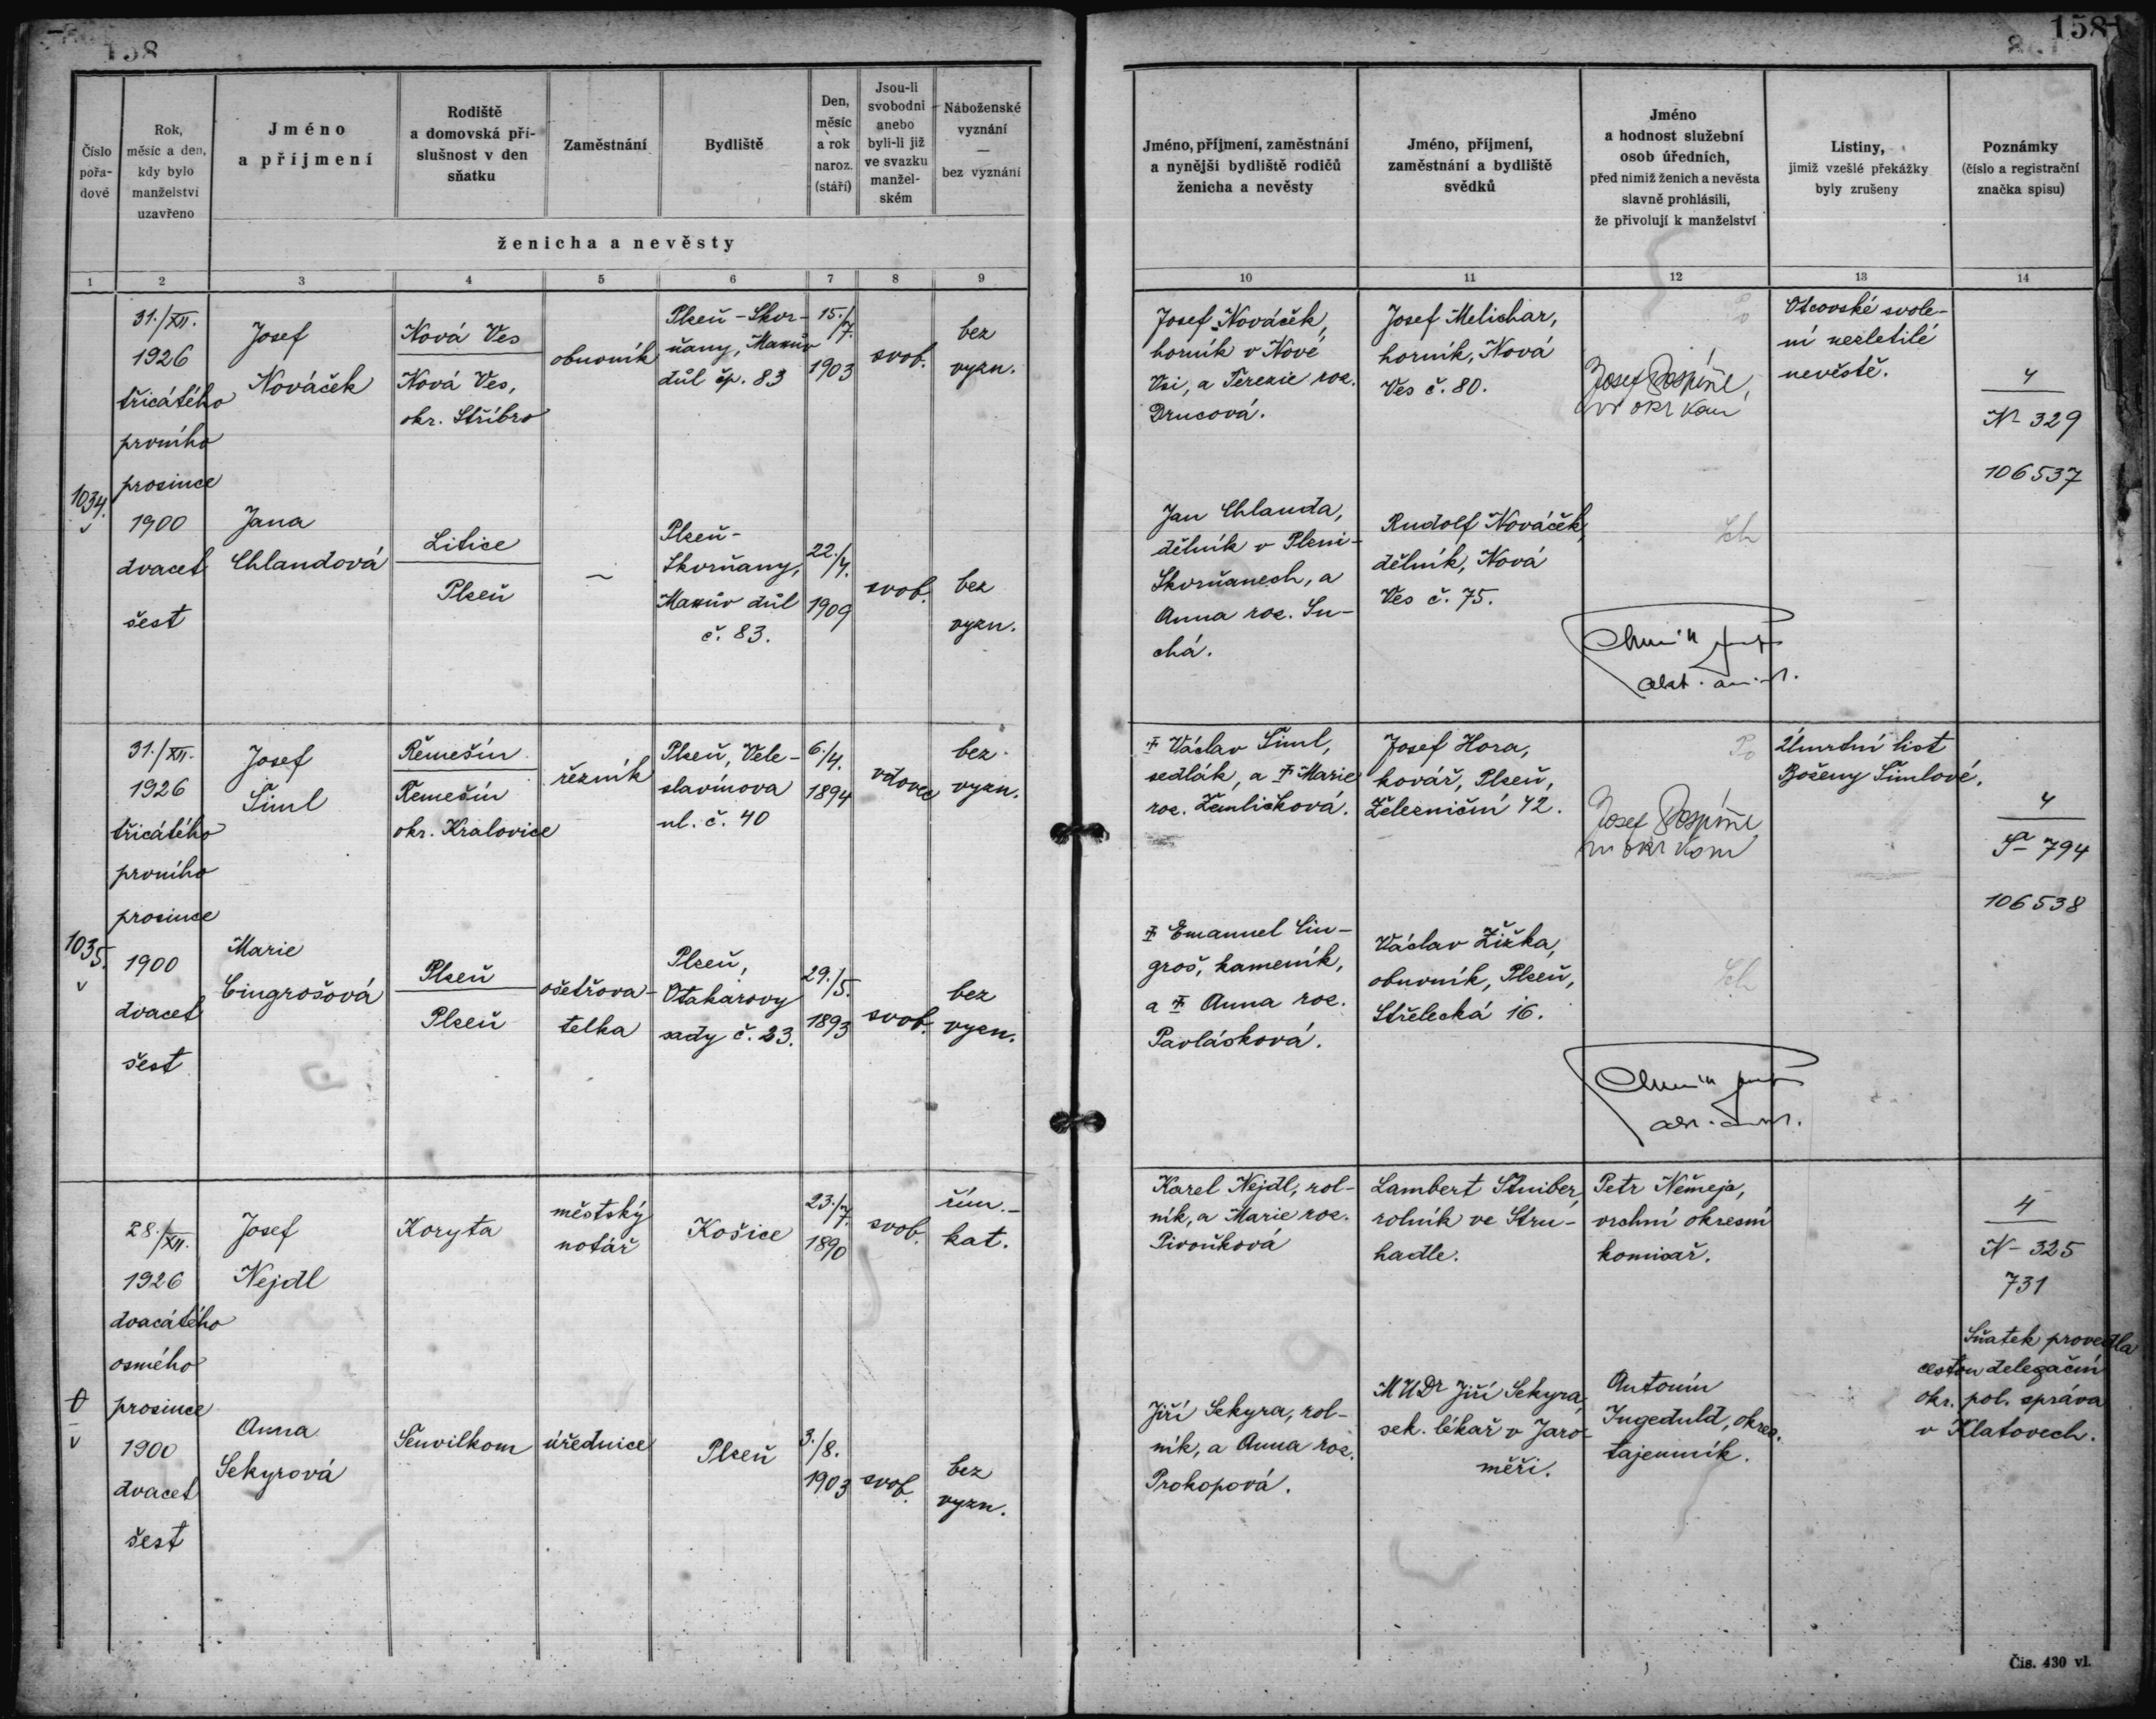 158
158
Číslo
pořa-
dové
Rok,
měsíc a den,
kdy bylo
manželství
uzavřeno
Jméno
a příjmení
Rodiště
a domovská pří-
slušnost v den
sňatku
Zaměstnání
Bydliště
Den,
měsíc
a rok
naroz.
(stáří)
Jsou-li
svobodni
anebo
byli-li již
ve svazku
manžel-
ském
Náboženské
vyznání
—
bez vyznání
ženicha a nevěsty
Jméno, příjmení, zaměstnání
a nynější bydliště rodičů
ženicha a nevěsty
Jméno, příjmení,
zaměstnání a bydliště
svědků
Jméno
a hodnost služební
osob úředních,
před nimiž ženich a nevěsta
slavně prohlásili,
že přivolují k manželství
Listiny,
jimiž vzešlé překážky
byly zrušeny
Poznámky
(číslo a registrační
značka spisu)
1 2 3 4 5 6 7 8 9
10 11 12 13 14
1034.
31./XII.
1926
třicátého
prvního
prosince
1900
dvacet
šest
Josef
Nováček
Nová Ves
Nová Ves,
okr. Stříbro
obuvník
Plzeň - Skvr-
ňany, Maxův
důl čp. 83
15./7.
1903
svob.
bez
vyzn.
Josef Nováček,
horník v Nové
Vsi, a Terezie roz.
Drucová.
Josef Melichar,
horník, Nová
Ves č. 80.
Josef Pospíšil,
vr okr kom
Otcovské svole-
ní nezletilé
nevěstě.
4
N- 329
106537
Jana
Chlandová
Litice
Plzeň
—
Plzeň-
Skvrňany,
Maxův důl
č. 83.
22./4.
1909
svob.
bez
vyzn.
Jan Chlanda,
dělník v Plzni-
Skvrňanech, a
Anna roz. Su-
chá.
Rudolf Nováček,
dělník, Nová
Ves č. 75.
1035.
31./XII.
1926
třicátého
prvního
prosince
1900
dvacet
šest
Josef
Šiml
Řemešín
Řemešín
okr. Kralovice
řezník
Plzeň, Vele-
slavínova
ul. č. 40
6./4.
1894
vdovec
bez
vyzn.
Václav Šiml,
sedlák, a Marie
roz. Žemličková.
Josef Hora,
kovář, Plzeň,
Železniční 42.
Josef Pospíšil
vr okr kom
Úmrtní list
Boženy Šimlové.
4
Š- 794
106538
Marie
Cingrošová
Plzeň
Plzeň
ošetřova-
telka
Plzeň,
Otakarovy
sady č. 23.
29./5.
1893
svob.
bez
vyzn.
Emanuel Cin-
groš, kameník,
a Anna roz.
Pavlásková.
Václav Žižka,
obuvník, Plzeň,
Střelecká 16.
0
28./XII.
1926
dvacátého
osmého
prosince
1900
dvacet
šest
Josef
Nejdl
Koryta
městský
notář
Košice
23./7.
1890
svob.
řím.-
kat.
Karel Nejdl, rol-
ník, a Marie roz.
Pivoňková
Lambert Stuiber,
rolník ve Stru-
hadle.
Petr Němeja,
vrchní okresní
komisař.
4
N- 325
731
Sňatek provedla
cestou delegační
okr. pol. správa
v Klatovech.
Anna
Sekyrová
Senvilkom
úřednice
Plzeň
3./8.
1903
svob.
bez
vyzn.
Jiří Sekyra, rol-
ník, a Anna roz.
Prokopová.
MUDr Jiří Sekyra,
sek. lékař v Jaro-
měři.
Antonín
Ingeduld, okres.
tajemník.
Čís. 430 vl.